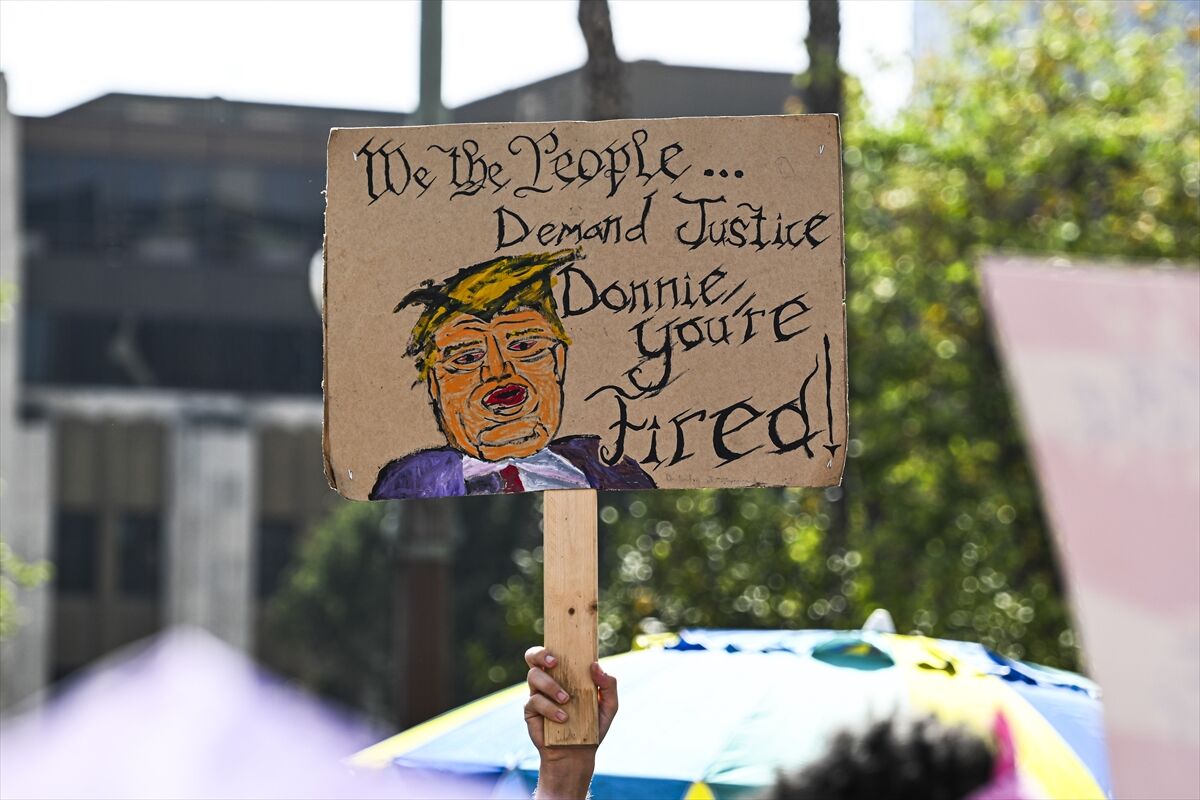 We the People...
Demand Justice
Donnie,
you're
Fired!